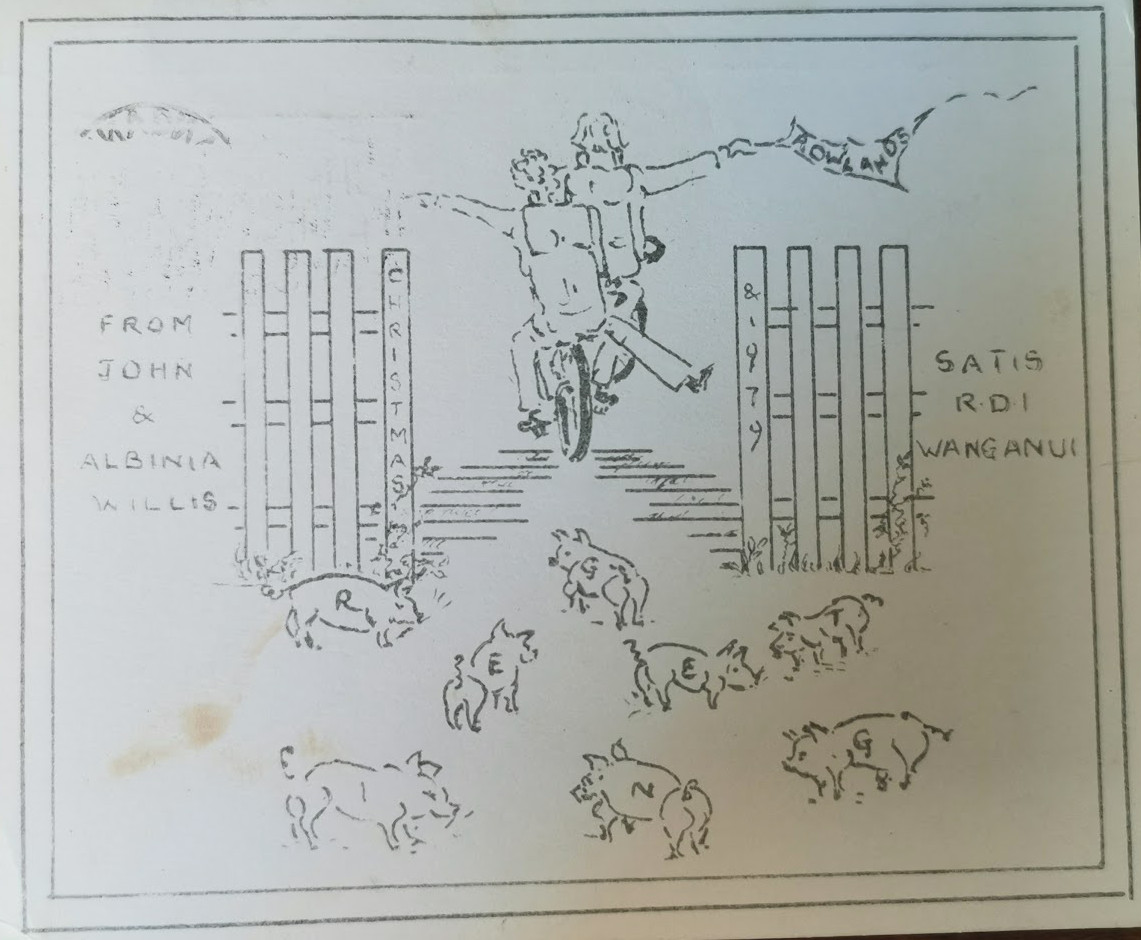 ROWLANDS
FROM
JOHN
&
ALBINIA
WILLIS
CHRISTMAS
& 1979
SATIS
R.D.1
WANGANUI
G
R
E
E
T
I
N
G